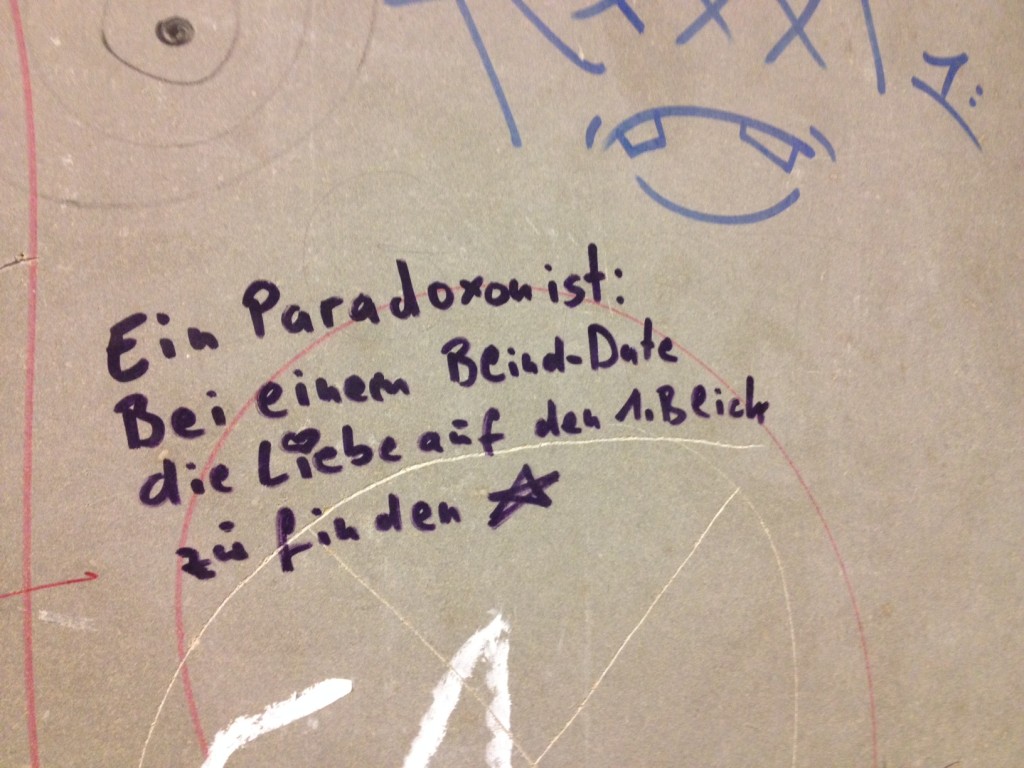 1:
Ein Paradoxon ist:
Bei einem Blind-Date
die Liebe auf den 1. Blick
zu finden